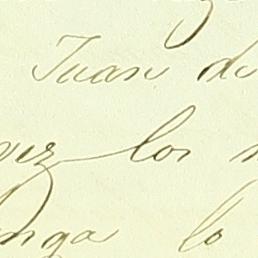 Juan de
vez los
nga lo